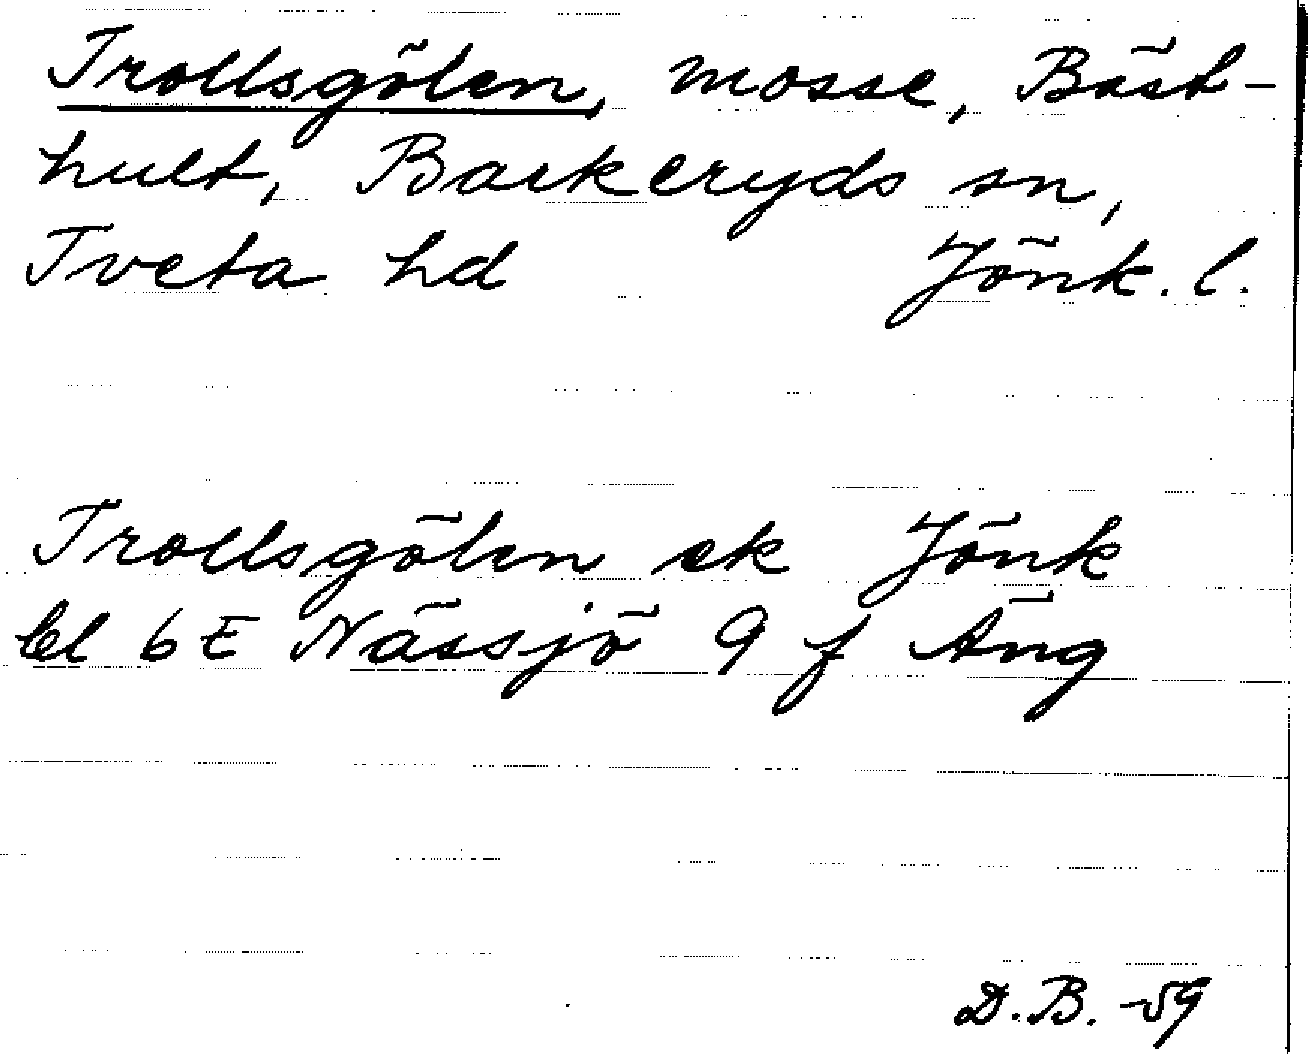 Trollsgölen, mosse, Bäst-
hult, Barkeryds sn,
Tveta hd Jönk. l.
Trollsgölen ek Jönk
bl 6 E Nässjö 9 f Äng
D.B. -59